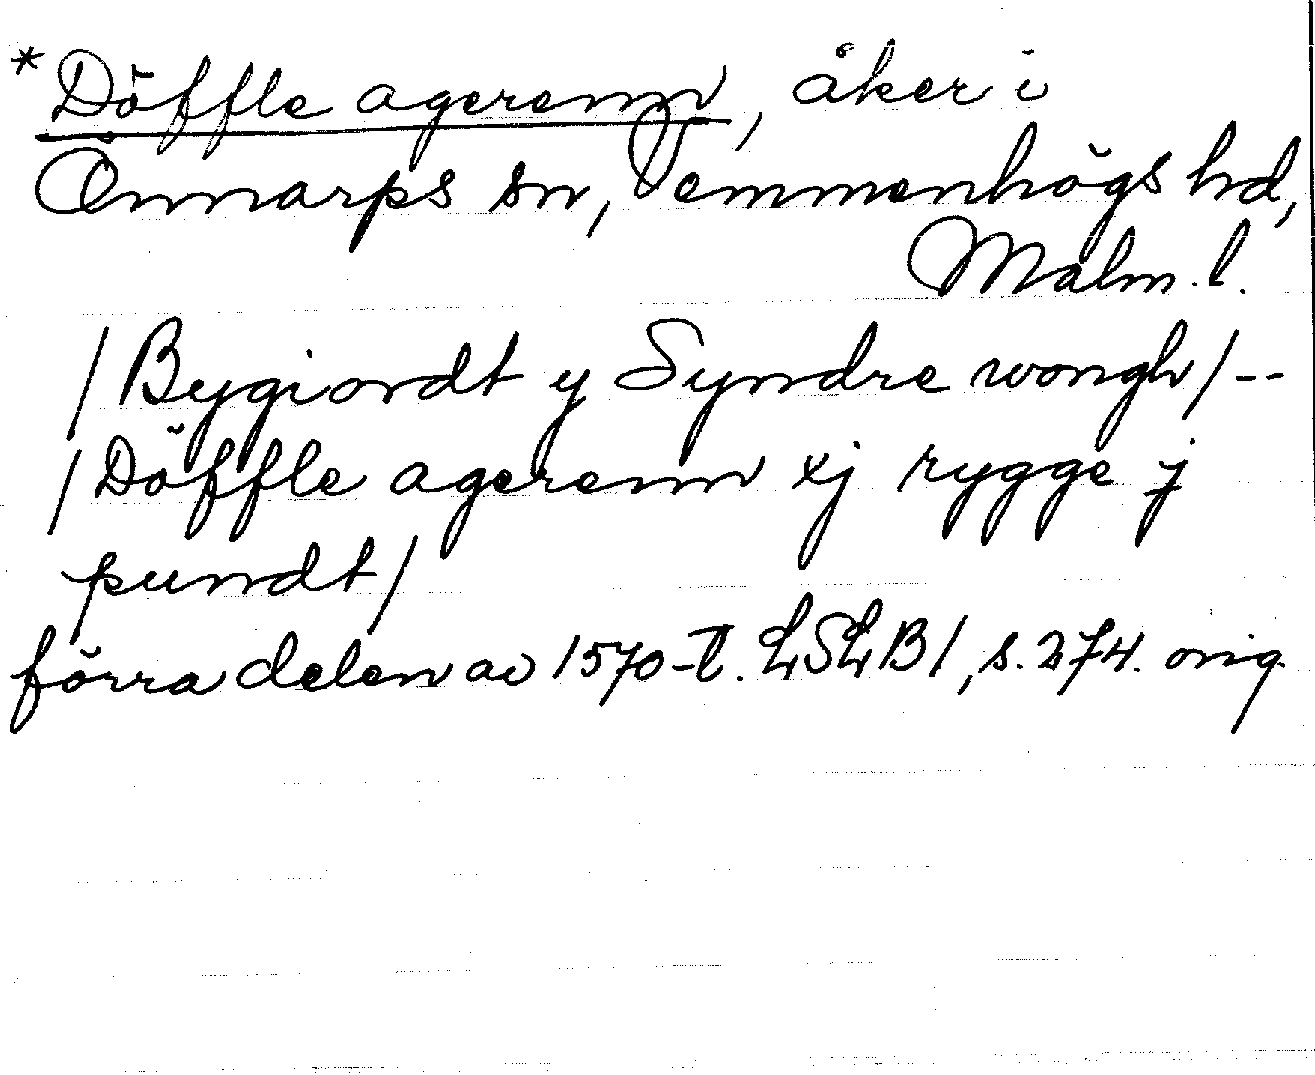 *Döffle agerenn, åker i
Önnarps sn, Vemmenhögs hd,
Malm. l.
/Bygiordt y Syndre wongh/--
/Döffle agerenn xj rygge j
pundt/
förra delen av 1570-t. LSLB1, s. 274. orig.